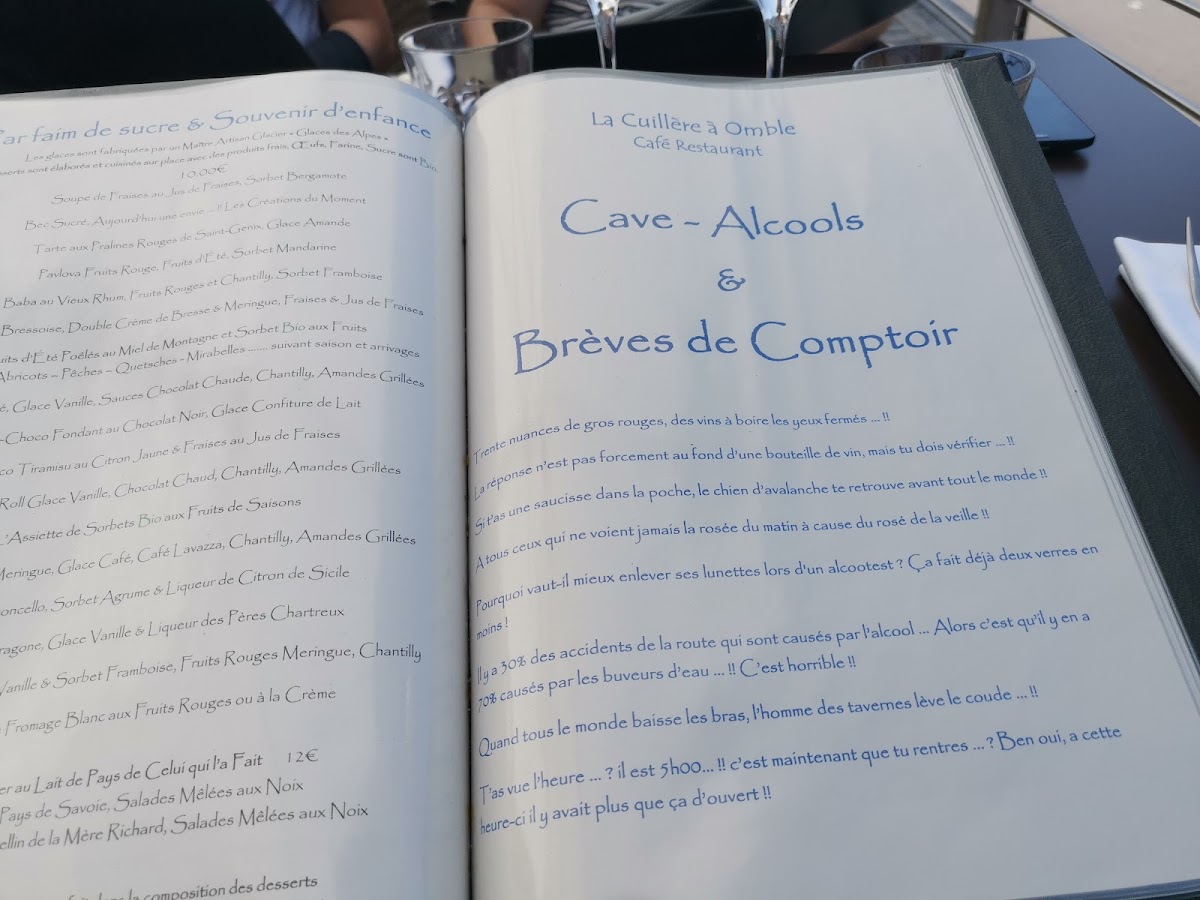 ar faim de sucre & Souvenir d'enfance
Les glaces sont fabriquées par un Maître Artisan Glacier « Glaces des Alpes »
sserts sont élaborés et cuisinés sur place avec des produits frais, Œufs, Farine, Sucre sont Bio.
10.00€
Soupe de Fraises au Jus de Fraises, Sorbet Bergamote
Bec Sucré, Aujourd'hui une envie ... !! Les Créations du Moment
Tarte aux Pralines Rouges de Saint-Genix, Glace Amande
Pavlova Fruits Rouge, Fruits d'Été, Sorbet Mandarine
Baba au Vieux Rhum, Fruits Rouges et Chantilly, Sorbet Framboise
Bressoise, Double Crème de Bresse & Meringue, Fraises & Jus de Fraises
uits d'Été Poêlés au Miel de Montagne et Sorbet Bio aux Fruits
Abricots – Pêches – Quetsches - Mirabelles ....... suivant saison et arrivages
é, Glace Vanille, Sauces Chocolat Chaude, Chantilly, Amandes Grillées
-Choco Fondant au Chocolat Noir, Glace Confiture de Lait
co Tiramisu au Citron Jaune & Fraises au Jus de Fraises
Roll Glace Vanille, Chocolat Chaud, Chantilly, Amandes Grillées
L'Assiette de Sorbets Bio aux Fruits de Saisons
Meringue, Glace Café, Café Lavazza, Chantilly, Amandes Grillées
oncello, Sorbet Agrume & Liqueur de Citron de Sicile
ragone, Glace Vanille & Liqueur des Pères Chartreux
Vanille & Sorbet Framboise, Fruits Rouges Meringue, Chantilly
Fromage Blanc aux Fruits Rouges ou à la Crème
er au Lait de Pays de Celui qui l'a Fait 12€
Pays de Savoie, Salades Mêlées aux Noix
ellin de la Mère Richard, Salades Mêlées aux Noix
dans la composition des desserts
La Cuillère à Omble
Café Restaurant
Cave - Alcools
&
Brèves de Comptoir
Trente nuances de gros rouges, des vins à boire les yeux fermés ... !!
La réponse n'est pas forcement au fond d'une bouteille de vin, mais tu dois vérifier ... !!
Si t'as une saucisse dans la poche, le chien d'avalanche te retrouve avant tout le monde !!
A tous ceux qui ne voient jamais la rosée du matin à cause du rosé de la veille !!
Pourquoi vaut-il mieux enlever ses lunettes lors d'un alcootest ? Ça fait déjà deux verres en
moins !
Il y a 30% des accidents de la route qui sont causés par l'alcool ... Alors c'est qu'il y en a
70% causés par les buveurs d'eau ... !! C'est horrible !!
Quand tous le monde baisse les bras, l'homme des tavernes lève le coude ... !!
T'as vue l'heure ... ? il est 5h00... !! c'est maintenant que tu rentres ... ? Ben oui, a cette
heure-ci il y avait plus que ça d'ouvert !!